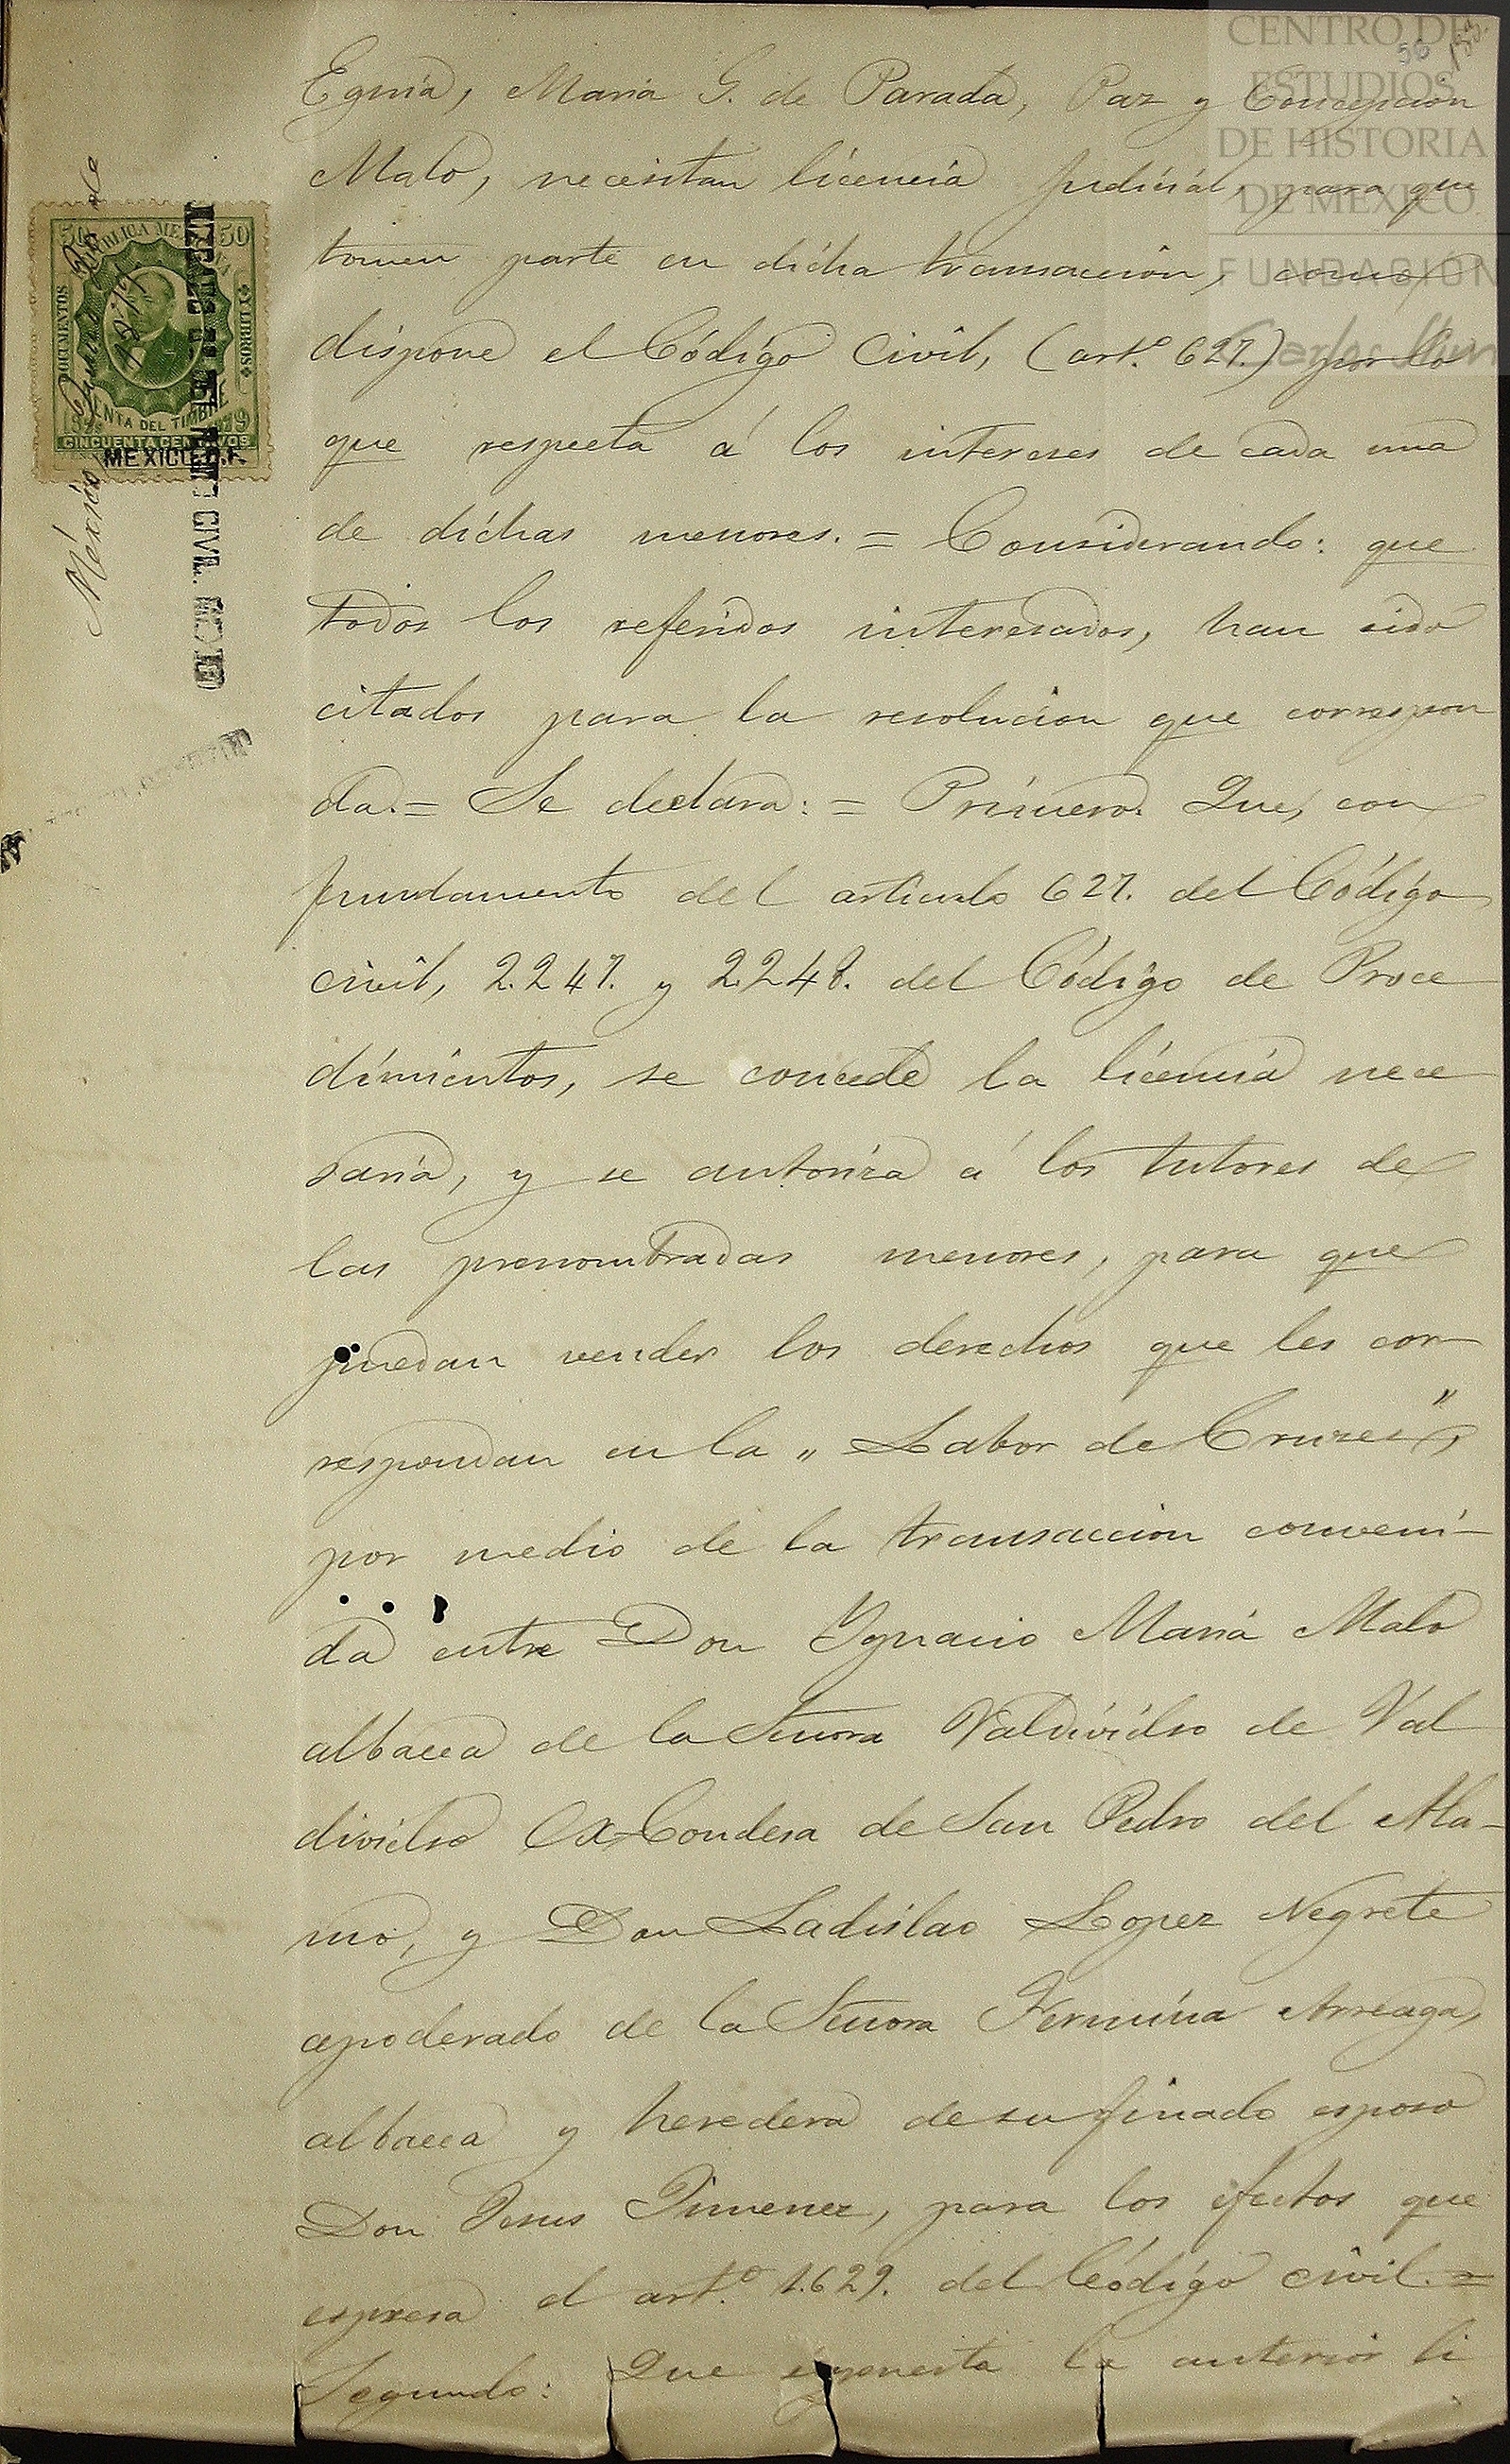 CENTRO DE
ESTUDIOS
DE HISTORIA
DE MEXICO
FUNDACIÓN
Carlos Slim
56
Eguía, Maria G. de Parada, Paz y Concepcion
Malo, necesitan licencia judicial, para que
tomen parte en dicha transaccion, como
dispone el Código Civil, (art.º 627.) por lo
que respecta á los intereses de cada una
de dichas menores. = Considerando: que
todos los referidos interesados, han sido
citados para la resolucion que correspon
da. = Se declara: = Primero. Que, con
fundamento del articulo 627. del Código
civil, 2.247. y 2.248. del Código de Proce
dimientos, se concede la licencia nece
saria, y se autoriza á los tutores de
las prenombradas menores, para que
puedan vender los derechos que les cor-
respondan en la „ Labor de Cruces",
por medio de la transaccion conveni-
da entre Don Ygnacio Maria Malo
albacea de la Señora Valdivielso de Val
divielso Ex-Condesa de San Pedro del Ala-
mo, y Don Ladislao Lopez Negrete
apoderado de la Señora Fermina Arreaga,
albacea y heredera de su finado esposo
Don Jesus Jimenez, para los efectos que
espresa el art.º 1.629. del Código civil. =
Segundo: Que espuesta la anterior li
50
REPUBLICA MEXICANA
50
DOCUMENTOS
Y LIBROS
RENTA DEL TIMBRE
1879
CINCUENTA CENTAVOS
MEXICO D.F.
CIVIL
México
de
1879